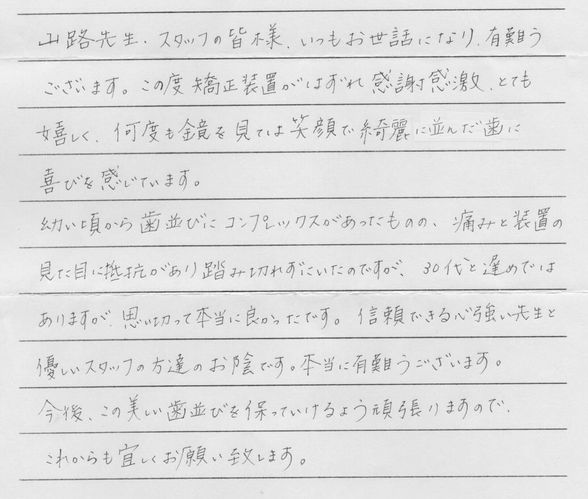 山路先生、スタッフの皆様、いつもお世話になり、有難う
ございます。この度矯正装置がはずれ感謝感激、とても
嬉しく、何度も鏡を見ては笑顔で綺麗に並んだ歯に
喜びを感じています。
幼い頃から歯並びにコンプレックスがあったものの、痛みと装置の
見た目に抵抗があり踏み切れずにいたのですが、30代と遅めでは
ありますが、思い切って本当に良かったです。信頼できる心強い先生と
優しいスタッフの方達のお陰です。本当に有難うございます。
今後、この美しい歯並びを保っていけるよう頑張りますので、
これからも宜しくお願い致します。